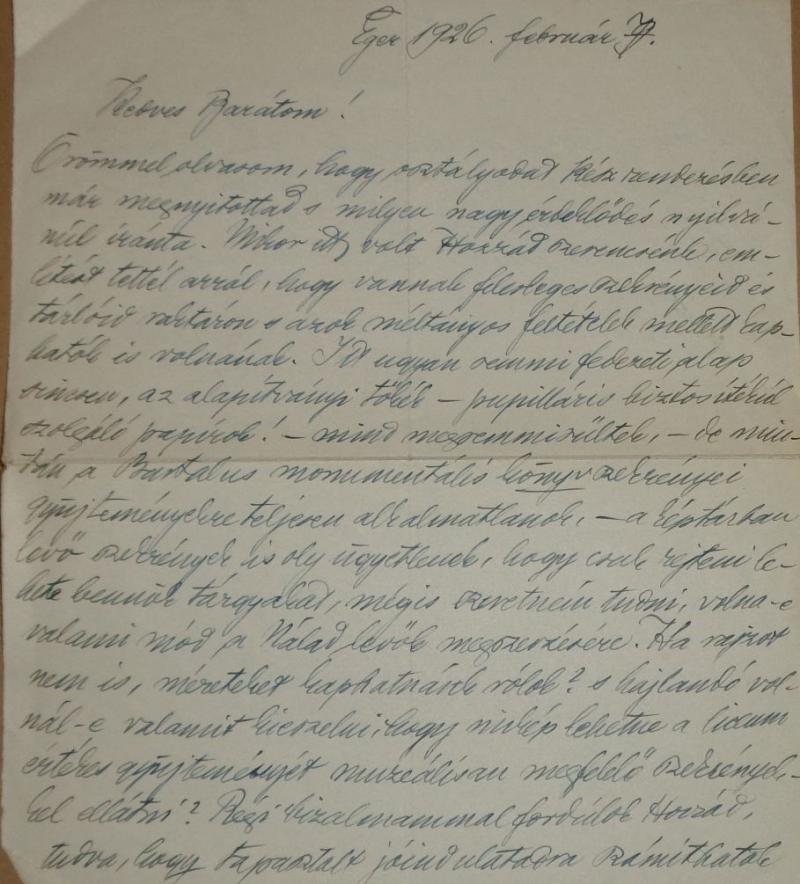 Eger 1926. február 7.
Kedves Barátom!
Örömmel olvasom, hogy osztályodat kész rendezésben
már megnyitottad s milyen nagy érdeklődés nyilvá-
núl iránta. Mikor itt volt Hozzád szerencsénk, em-
lítést tettél arról, hogy vannak felesleges szekrényeid és
tárlóid raktáron s azok méltányos feltételek mellett kap-
hatók is volnának. Itt ugyan semmi fedezeti alap
sincsen, az alapítványi tőkék – pupilláris biztosítékúl
szolgáló papírok! – mind megsemmisűltek, – de miu-
tán a Bartalus monumentális könyvszekrényei
gyüjteményekre teljesen alkalmatlanok, – a képtárban
levő szekrények is oly ügyetlenek, hogy csak rejteni le-
het bennök tárgyakat, mégis szeretném tudni, volna-e
valami mód a Nálad levők megszerzésére. Ha rajzot
nem is, méreteket kaphatnánk rólok? s hajlandó vol-
nál-e valamit kieszelni, hogy mikép lehetne a liceum
értékes gyüjteményét muzeálisan megfelelő szekrények-
kel ellátni? Régi bizalmammal fordúlok Hozzád,
tudva, hogy tapasztalt jóindulatodra számíthatok